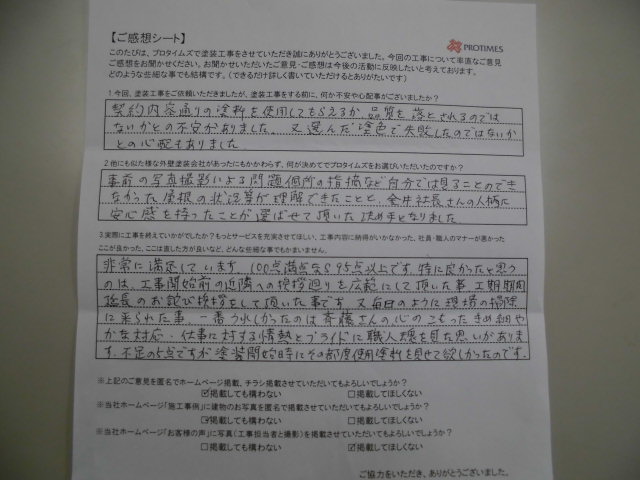 【ご感想シート】
PROTIMES
このたびは、プロタイムズで塗装工事をさせていただき誠にありがとうございました。今回の工事について率直なご意見
ご感想をお聞かせください。お聞かせいただいたご意見・ご感想は今後の活動に反映したいと考えております。
どのような些細な事でも結構です。(できるだけ詳しく書いていただけるとありがたいです)
1.今回、塗装工事をご依頼いただきましたが、塗装工事をする前に、何か不安や心配事がございましたか?
契約内容通りの塗料を使用してもらえるか、品質を落とされるのでは
ないかとの不安がありました。又選んだ塗色で失敗したのではないか
との心配もありました。
2.他にも似た様な外壁塗装会社があったにもかかわらず、何が決めてでプロタイムズをお選びいただいたのですか?
事前の写真撮影による問題個所の指摘など自分では見ることのでき
なかった屋根の状況等が理解できたことと、会社社長さんの人柄に
安心感を持ったことが選ばせて頂いた決め手となりました
3.実際に工事を終えていかがでしたか?もっとサービスを充実させてほしい、工事内容に納得がいかなかった、社員・職人のマナーが悪かった
ここが良かった、ここは直した方が良いなど、どんな些細な事でもかまいません。
非常に満足しています。100点満点なら95点以上です。特に良かったと思う
のは、工事開始前の近隣への挨拶廻りを広範にして頂いた事、工期期間
延長のお詫び挨拶をして頂いた事です。又毎日のように現場の掃除
に来られた事。一番うれしかったのは斉藤さんの心のこもったきめ細や
かな対応、仕事に対する情熱とプライドに職人魂を見た思いがありま
す。不足の5点ですが塗装開始時にその都度使用塗料を見せて欲しかったのです。
※上記のご意見を匿名でホームページ掲載、チラシ掲載させていただいてもよろしいでしょうか?
☑掲載しても構わない □掲載してほしくない
※当社ホームページ「施工事例」に建物のお写真を匿名で掲載させていただいてもよろしいでしょうか?
☑掲載しても構わない □掲載してほしくない
※当社ホームページ「お客様の声」に写真(工事担当者と撮影)を掲載させていただいてもよろしいでしょうか?
□掲載しても構わない ☑掲載してほしくない
ご協力をいただき、ありがとうございました。